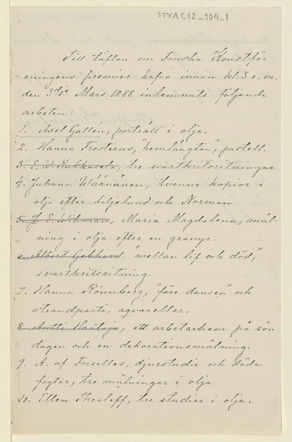 STYAC12_104_1
Till täflan om Finska Konstför-
eningens premier hafva innan kl. 3 e. m.
den 3 Mars 1888 indemnats följande
arbeten:
1. Axel Gallén, porträtt i olja.
2. Hanna Frosterus, "hemlängtan", pastell.
3. tre svartkritsritningar.
4. Juliana Wäänänen, tvenne kopior i
olja efter Liljelund och Norman.
5. Maria Magdalena, mål-
ning i olja efter en gravyr.
6. Albert Gebhard, "mellan lif och död,"
svartkritsritning.
7. Nanna Rönnberg, "före dansen" och
strandparti, aqvareller.
8. Antti ett arbetarehem på sön
dagen och en dekorationsmålning.
9. A. af Forselles, djurstudie och döda
foglar, tre målningar i olja
10. Ellen Thesleff, tre studier i olja.